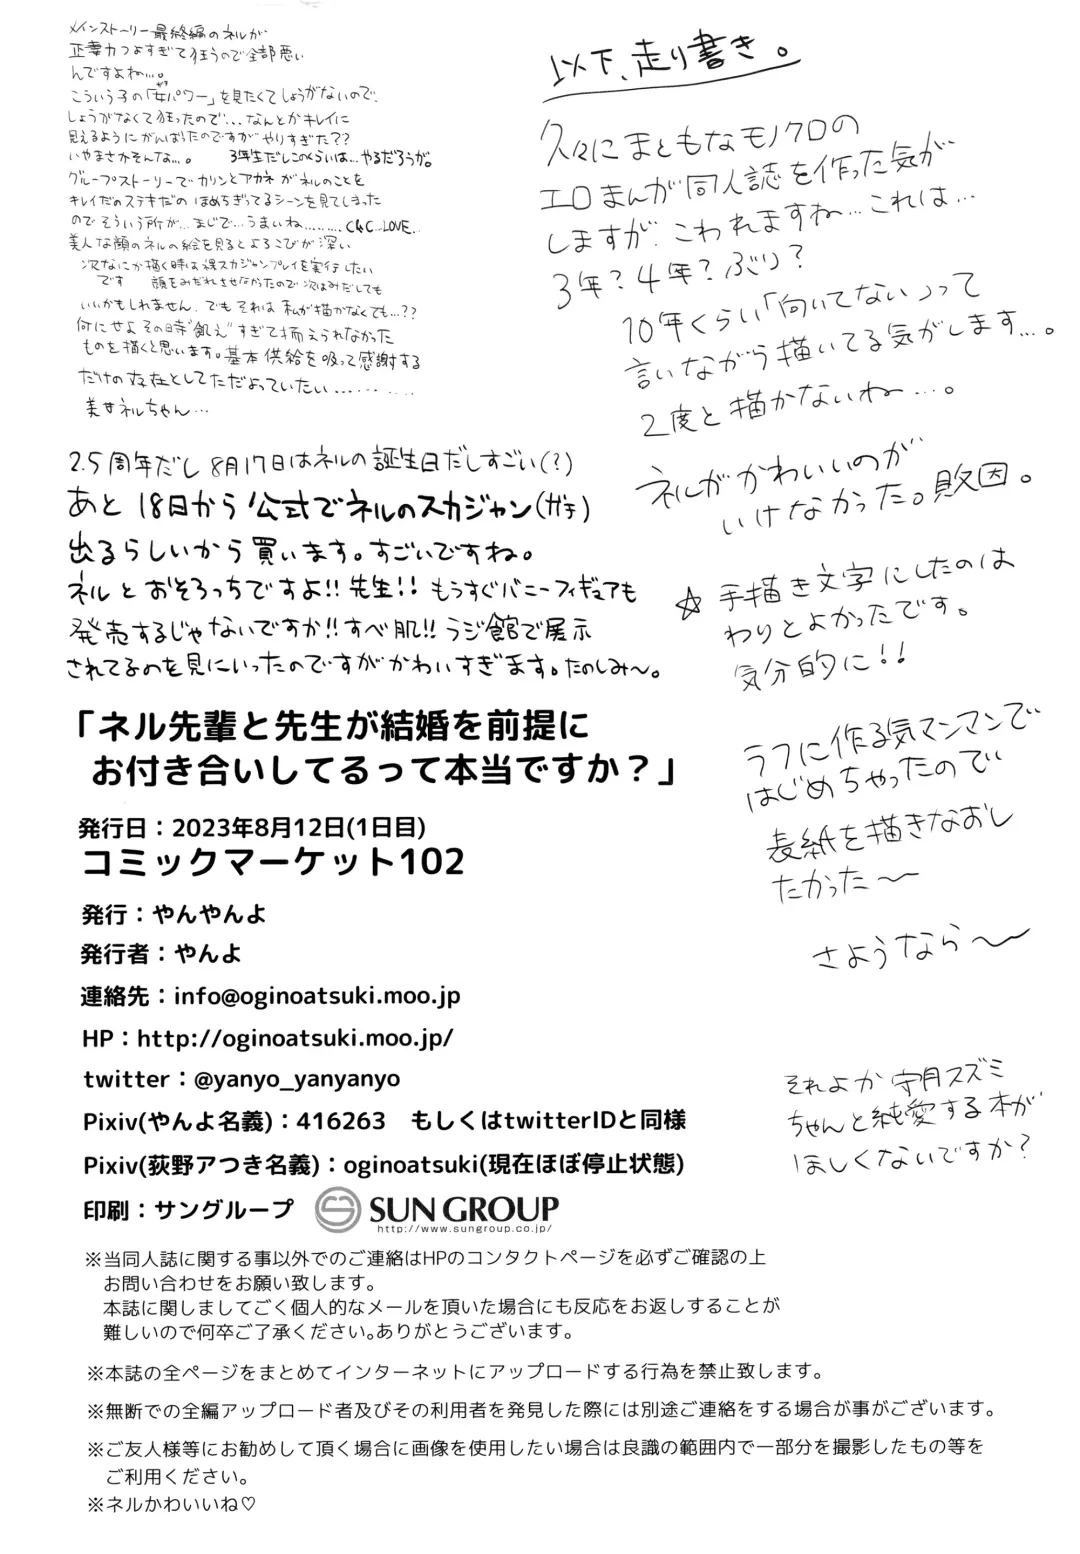 メインストーリー最終編のネルが
正妻力つよすぎて狂うので全部悪い
んですよね…。
こういう子の「女パワー」を見たくてしょうがないので、
しょうがなくて狂ったので…なんとかキレイに
見えるようにがんばったのですがやりすぎた??
いやまさかそんな…。 3年生だしこのくらいは…やるだろうが。
グループストーリーでカリンとアカネがネルのことを
キレイだのステキだの ほめちぎってるシーンを見てしまった
のでそういう所が…まじで…うまいね……… C&C…LOVE…
美人な顔のネルの絵を見るとよろこびが深い
次なにか描く時は裸スカジャンプレイを実行したい
です 顔をみだれさせなかったので次はみだしても
いいかもしれません。でもそれは私が描かなくても…??
何にせよその時"飢え"すぎて抑えられなかった
ものを描くと思います。基本供給を吸って感謝する
だけの存在としてただよっていたい………
美女ネルちゃん…
2.5周年だし8月17日はネルの誕生日だしすごい(?)
あと18日から公式でネルのスカジャン(ガチ)
出るらしいから買います。すごいですね。
ネルとおそろっちですよ!!先生!!もうすぐバニーフィギュアも
発売するじゃないですか!!すべ肌!!ラジ館で展示
されてるのを見にいったのですがかわいすぎます。たのしみ〜。
以下、走り書き。
久々にまともなモノクロの
エロまんが同人誌を作った気が
しますが、こわれますね…これは…
3年?4年?ぶり?
10年くらい「向いてない」って
言いながら描いてる気がします…。
2度と描かないね…。
ネルがかわいいのが
いけなかった。敗因。
☆手描き文字にしたのは
わりとよかったです。
気分的に!!
ラフに作る気マンマンで
はじめちゃったので
表紙を描きなおし
たかった〜
さようなら〜
それよか 守月スズミ
ちゃんと純愛する本が
ほしくないですか?
「ネル先輩と先生が結婚を前提に
お付き合いしてるって本当ですか？」
発行日：2023年8月12日(1日目)
コミックマーケット102
発行：やんやんよ
発行者：やんよ
連絡先：info@oginoatsuki.moo.jp
HP：http://oginoatsuki.moo.jp/
twitter：@yanyo_yanyanyo
Pixiv(やんよ名義)：416263 もしくはtwitterIDと同様
Pixiv(荻野アつき名義)：oginoatsuki(現在ほぼ停止状態)
印刷：サングループ SUN GROUP
http://www.sungroup.co.jp/
※当同人誌に関する事以外でのご連絡はHPのコンタクトページを必ずご確認の上
お問い合わせをお願い致します。
本誌に関しましてごく個人的なメールを頂いた場合にも反応をお返しすることが
難しいので何卒ご了承ください。ありがとうございます。
※本誌の全ページをまとめてインターネットにアップロードする行為を禁止致します。
※無断での全編アップロード者及びその利用者を発見した際には別途ご連絡をする場合が事がございます。
※ご友人様等にお勧めして頂く場合に画像を使用したい場合は良識の範囲内で一部分を撮影したもの等を
ご利用ください。
※ネルかわいいね♡